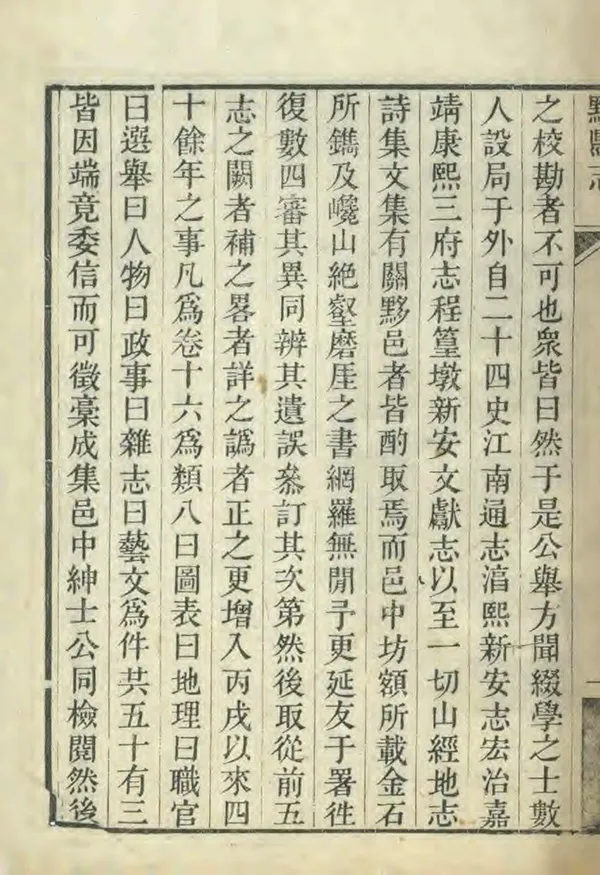 黟縣志
之校勘者不可也衆皆曰然于是公舉方聞綴學之士數
人設局于外自二十四史江南通志淳熙新安志宏治嘉
靖康熙三府志程篁墩新安文獻志以至一切山經地志
詩集文集有關黟邑者皆酌取焉而邑中坊額所載金石
所鐫及巉山絶壑磨厓之書網羅無閒予更延友于署徃
復數四審其異同辨其遺誤叅訂其次第然後取從前五
志之闕者補之畧者詳之譌者正之更增入丙戌以來四
十餘年之事凡爲卷十六爲類八曰圖表曰地理曰職官
曰選舉曰人物曰政事曰雜志曰藝文爲件共五十有三
皆因端竟委信而可徵稾成集邑中紳士公同檢閱然後